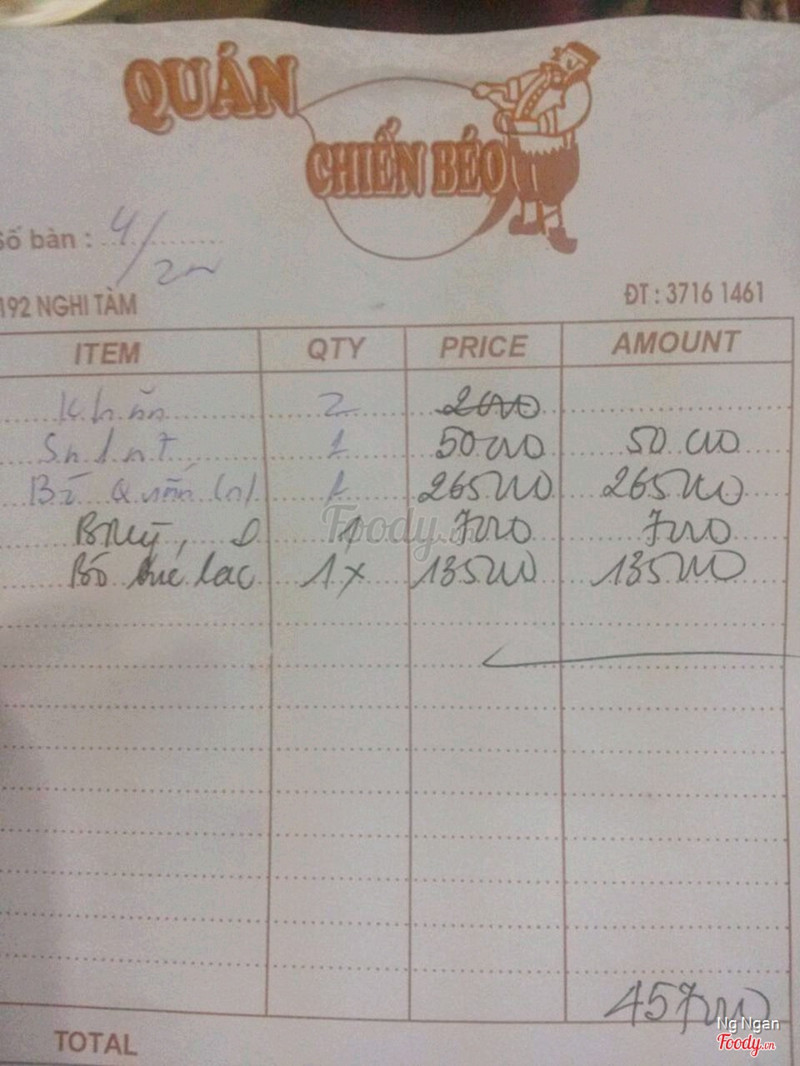 QUÁN
CHIẾN BÉO
Số bàn : 4/2
192 NGHI TÀM
ĐT : 3716 1461
ITEM QTY PRICE AMOUNT
Khăn 2 2000
1 50000 50000
Bò Quấn 1 265000 265000
B Mỳ, 1 7000 7000
Bò lúc lắc 1x 135000 135000
457000
TOTAL
Foody.vn
Ng Ngan
Foody.vn